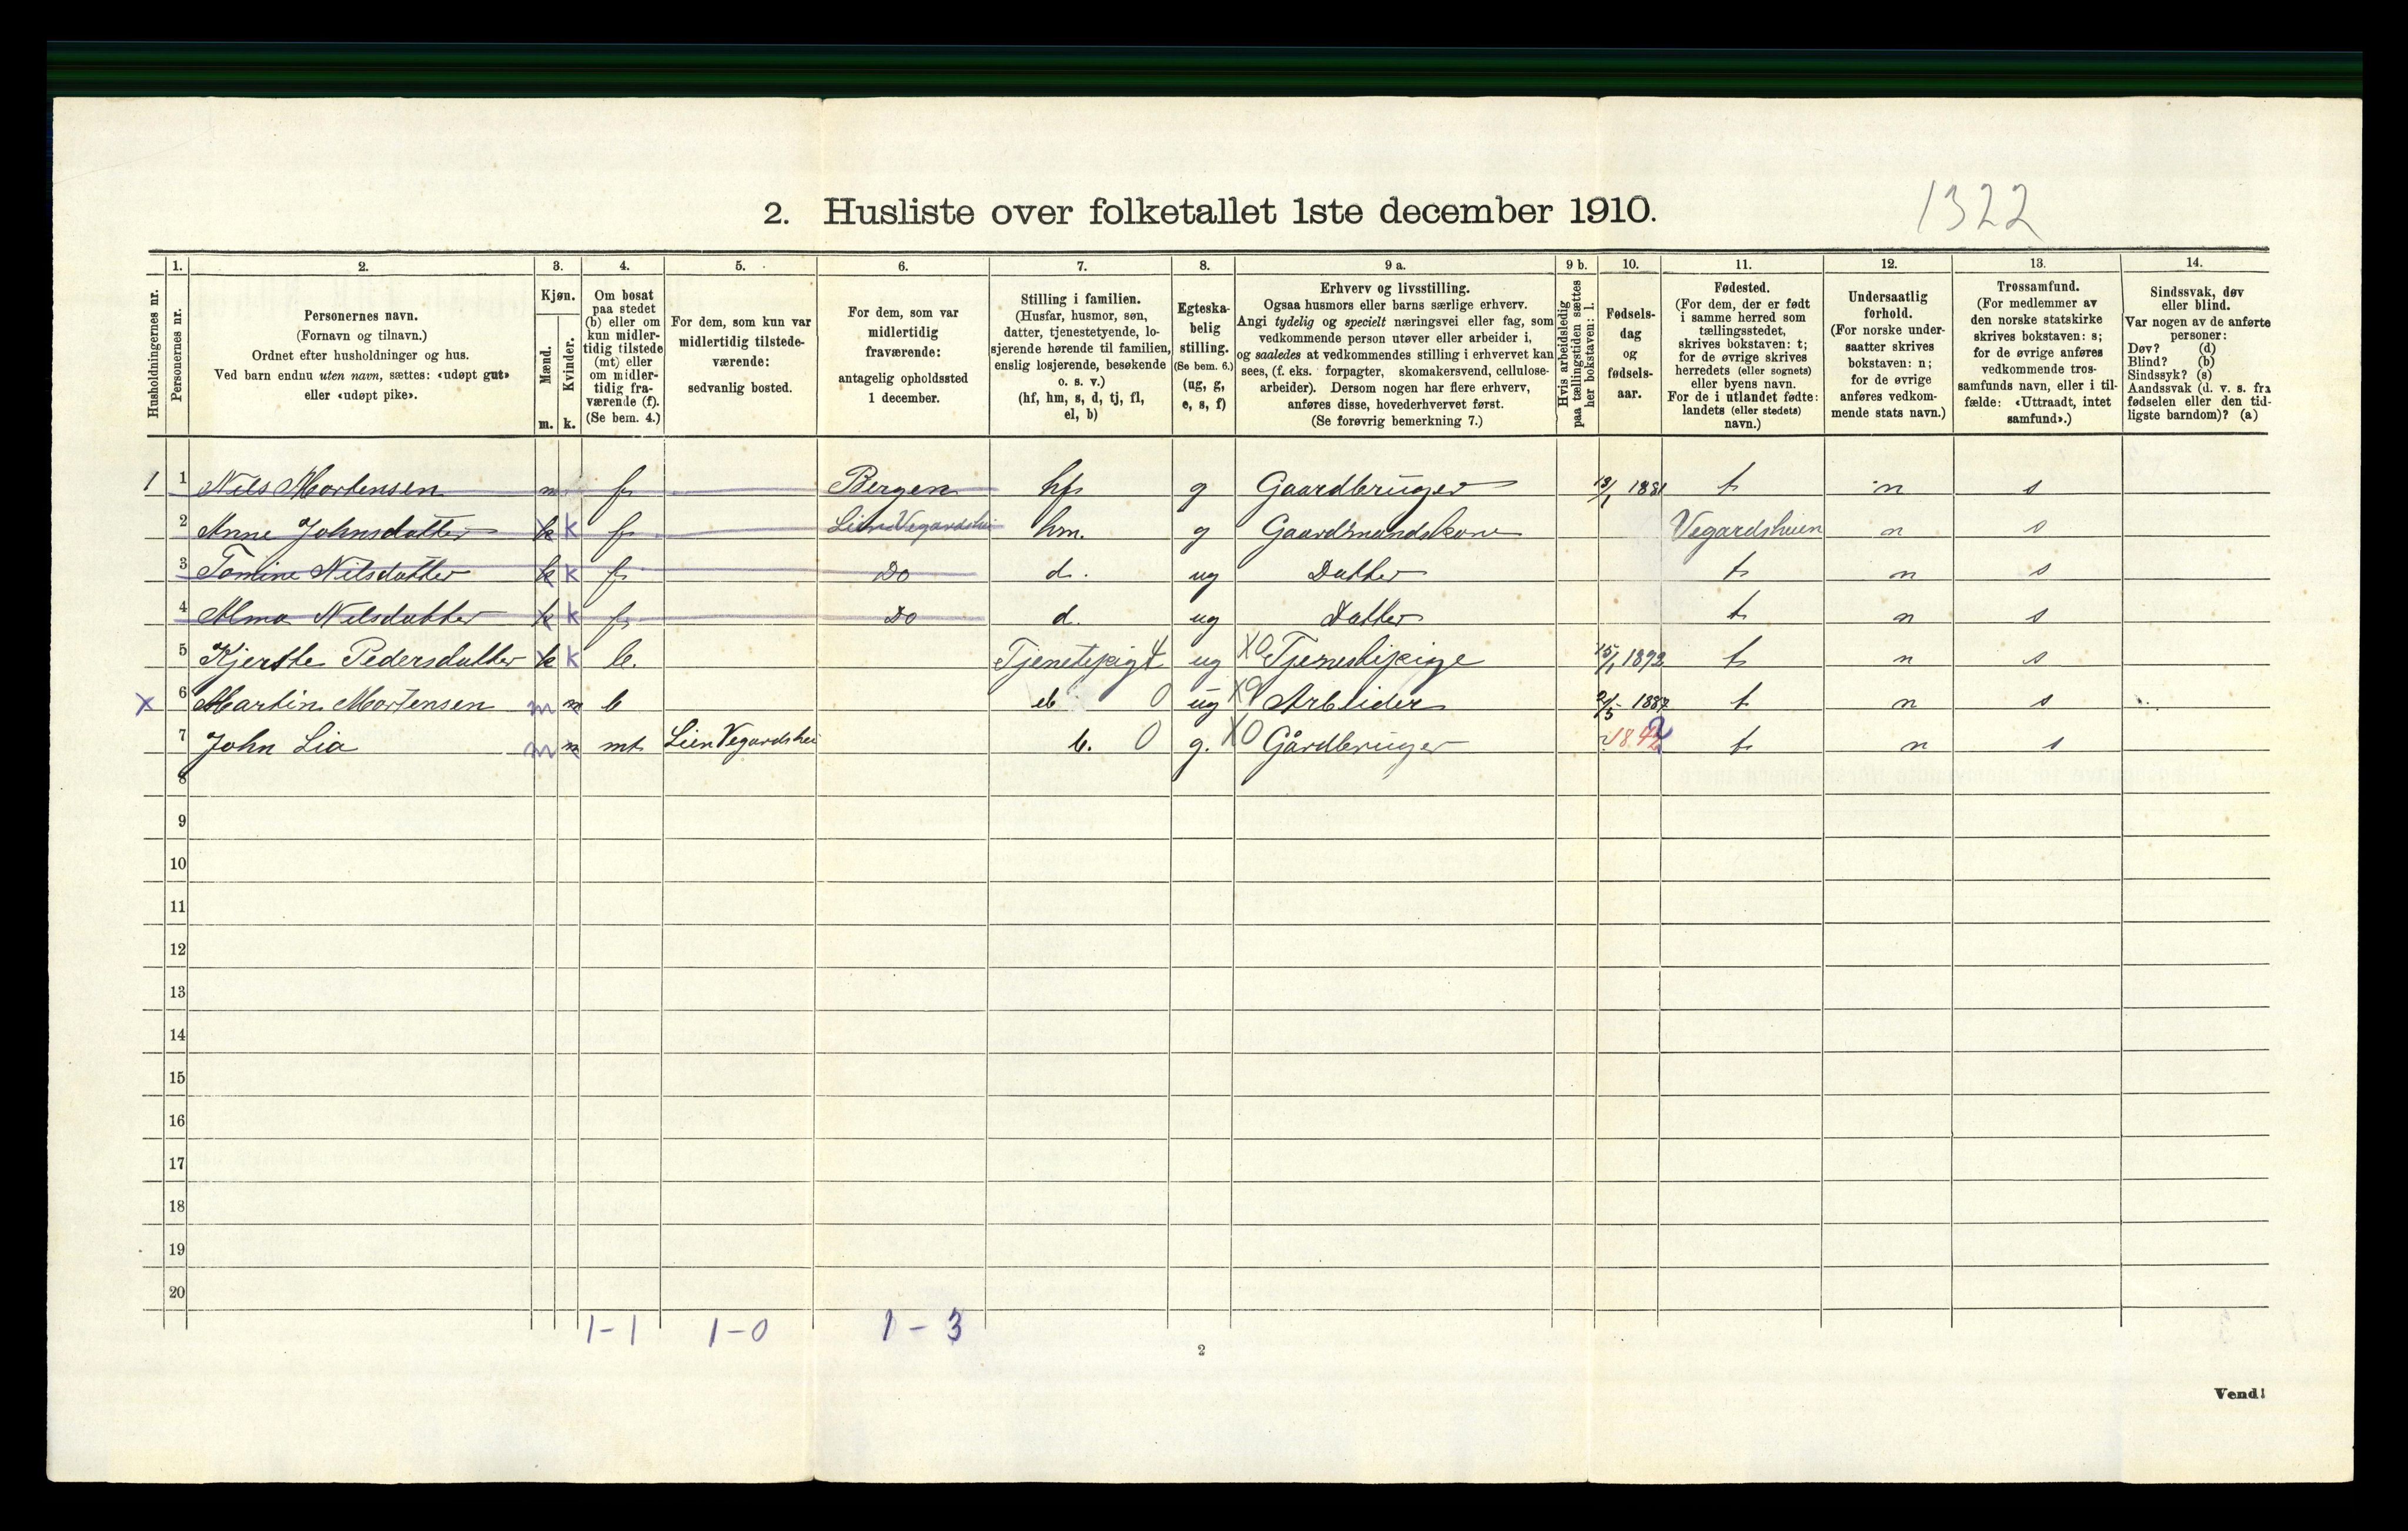 1322
2. Husliste over folketallet 1ste december 1910.
Husholdningernes nr.
1. Personernes nr.
2. Personernes navn.
(Fornavn og tilnavn.)
Ordnet efter husholdninger og hus.
Ved barn endnu uten navn, sættes: «udøpt gut»
eller «udøpt pike».
3. Kjøn.
Mænd. m.
Kvinder. k.
4. Om bosat
paa stedet
(b) eller om
kun midler-
tidig tilstede
(mt) eller
om midler-
tidig fra-
værende (f).
(Se bem. 4.)
5. For dem, som kun var
midlertidig tilstede-
værende:
sedvanlig bosted.
6. For dem, som var
midlertidig
fraværende:
antagelig opholdssted
1 december.
7. Stilling i familien.
(Husfar, husmor, søn,
datter, tjenestetyende, lo-
sjerende hørende til familien,
enslig losjerende, besøkende
o. s. v.)
(hf, hm, s, d, tj, fl,
el, b)
8. Egteska-
belig
stilling.
(Se bem. 6.)
(ug, g,
e, s, f)
9 a. Erhverv og livsstilling.
Ogsaa husmors eller barns særlige erhverv.
Angi tydelig og specielt næringsvei eller fag, som
vedkommende person utøver eller arbeider i,
og saaledes at vedkommendes stilling i erhvervet kan
sees, (f. eks. forpagter, skomakersvend, cellulose-
arbeider). Dersom nogen har flere erhverv,
anføres disse, hovederhvervet først.
(Se forøvrig bemerkning 7.)
9 b. Hvis arbeidsledig
paa tællingstiden sættes
her bokstaven: l.
10. Fødsels-
dag
og
fødsels-
aar.
11. Fødested.
(For dem, der er født
i samme herred som
tællingsstedet,
skrives bokstaven: t;
for de øvrige skrives
herredets (eller sognets)
eller byens navn.
For de i utlandet fødte:
landets (eller stedets)
navn.)
12. Undersaatlig
forhold.
(For norske under-
saatter skrives
bokstaven: n;
for de øvrige
anføres vedkom-
mende stats navn.)
13. Trossamfund.
(For medlemmer av
den norske statskirke
skrives bokstaven: s;
for de øvrige anføres
vedkommende tros-
samfunds navn, eller i til-
fælde: «Uttraadt, intet
samfund».)
14. Sindssvak, døv
eller blind.
Var nogen av de anførte
personer:
Døv? (d)
Blind? (b)
Sindssyk? (s)
Aandssvak (d. v. s. fra
fødselen eller den tid-
ligste barndom)? (a)
1 1 Nils Mortensen m f Bergen hf g Gaardbruger 13/1 1881 t n s
2 Anne Johnsdatter k k f Lien Vegardshei hm. g Gaardmandskone Vegardsheien n s
3 Tomine Nilsdatter k k f Do d. ug Datter t n s
4 Alma Nilsdatter k k f Do d. ug Datter t n s
5 Kjerste Pedersdatter k k b. Tjenetepige 4 ug X0 Tjenestepige 15/1 1892 t n s
X 6 Martin Mortensen m m b el 0 ug X9 Arbeider 2/5 1887 t n s
7 John Lia m m mt Lien Vegardshei b. 0 g. X0 Gårdbruger 1842 t n s
8
9
10
11
12
13
14
15
16
17
18
19
20
1-1 1-0 1-3
2
Vend!